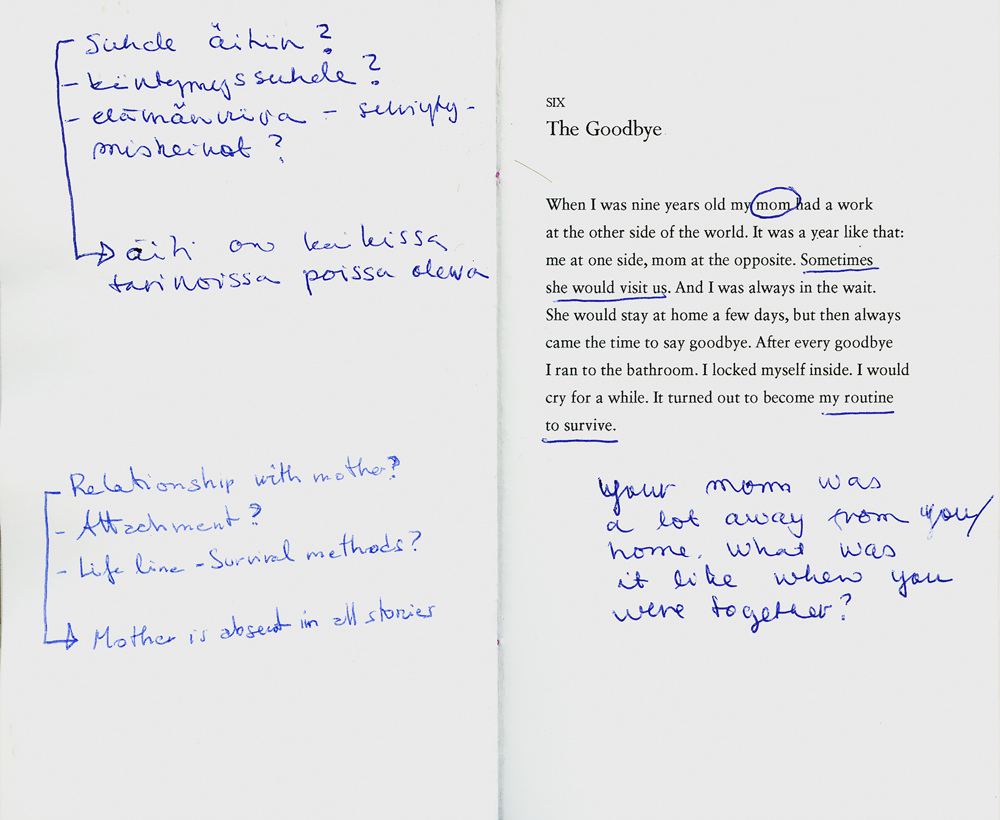 - Suhde äitiin?
- kiintymyssuhde?
- elämänviiva - selviyty-
miskeinot?
äiti on kaikissa
tarinoissa poissa oleva
- Relationship with mother?
- Attachment?
- Life line - Survival methods?
Mother is absent in all stories
SIX
The Goodbye
When I was nine years old my mom had a work
at the other side of the world. It was a year like that:
me at one side, mom at the opposite. Sometimes
she would visit us. And I was always in the wait.
She would stay at home a few days, but then always
came the time to say goodbye. After every goodbye
I ran to the bathroom. I locked myself inside. I would
cry for a while. It turned out to become my routine
to survive.
Your mom was
a lot away from you/
home. What was
it like when you
were together?